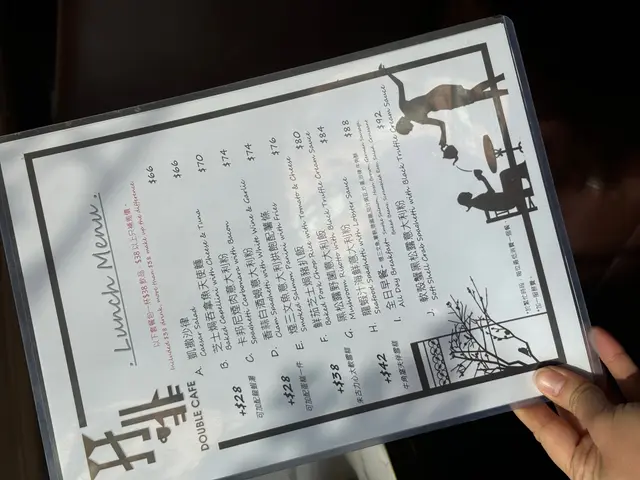 Lunch Menu
Included $38 drink, more than $38 make up the difference
A. 凱撒沙律
Caesar Salad
$66
B. 芝士焗吞拿魚天使麵
Baked Capellini with Cheese & Tuna
$66
C. 卡邦尼燒肉意大利粉
Spaghetti Carbonara with Bacon
$70
D. 香蒜白酒蜆意大利粉
Clam Spaghetti with White Wine & Garlic
$74
E. 煙三文魚意大利飽配薯條
Smoked Salmon Panini with Fries
$74
F. 鮮茄芝士焗豬扒飯
Baked Pork Chop Rice with Tomato & Cheese
$76
G. 黑松露野菌意大利飯
Mushroom Risotto with Black Truffle Cream Sauce
$80
H. 龍蝦汁海鮮意大利粉
Seafood Spaghetti with Lobster Sauce
$84
I. 全日早餐
All Day Breakfast
$88
J. 軟殼蟹黑松露意大利粉
Soft Shell Crab Spaghetti with Black Truffle Cream Sauce
$92
+$28
+$28
可加配
+$38
+$42
DOUBLE CAFE